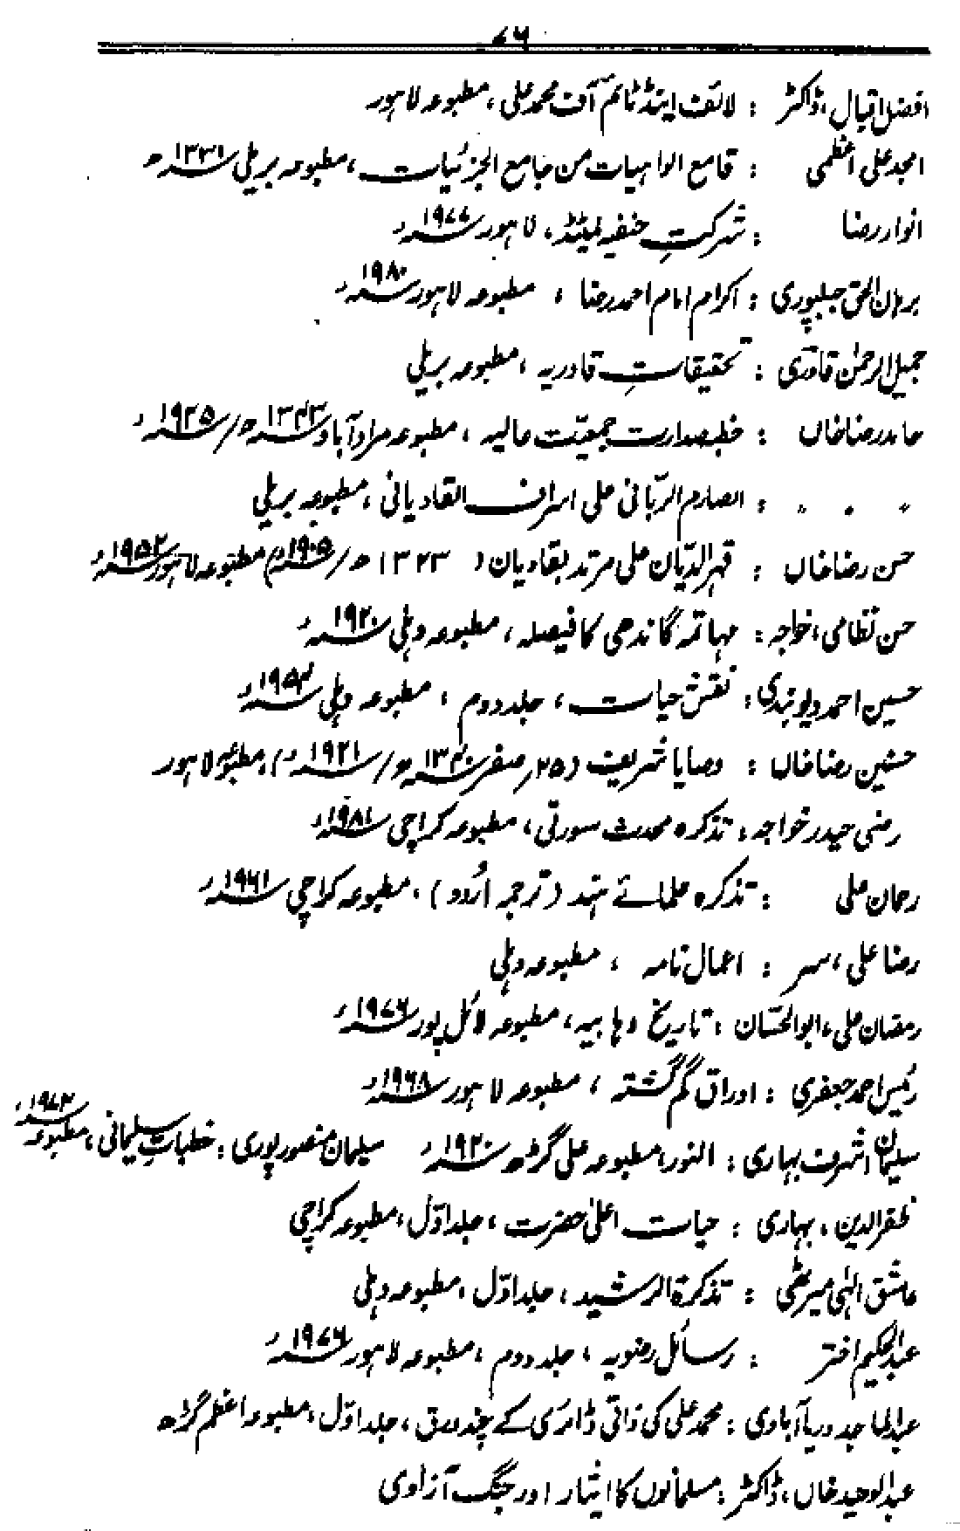 ۷۶
افضل اقبال، ڈاکٹر : لائف اینڈ ٹائم آف محمد علی، مطبوعہ لاہور
امجد علی اعظمی : قامع الواہیات من جامع الجزئیات، مطبوعہ بریلی ۱۳۳۱ھ
انوار رضا : شرکتِ حنفیہ لمیٹڈ، لاہور ۱۹۷۷ء
برہان الحق جبلپوری : اکرام امام احمد رضا ، مطبوعہ لاہور ۱۹۸۰ء
جمیل الرحمٰن قادری : تحقیقاتِ قادریہ، مطبوعہ بریلی
حامد رضا خاں : خطبہ صدارت جمعیّت عالیہ ، مطبوعہ مراد آباد ۱۳۴۳ھ/۱۹۲۵ء
〃 〃 〃 : الصارم الربّانی علی اسراف القادیانی، مطبوعہ بریلی
حسن رضا خاں : قہر الدیّان علی مرتد بقادیان (۱۳۲۳ھ/۱۹۰۵ء) مطبوعہ لاہور ۱۹۵۲ء
حسن نظامی، خواجہ : مہاتمہ گاندھی کا فیصلہ، مطبوعہ دہلی ۱۹۲۰ء
حسین احمد دیوبندی : نقش حیات ، جلد دوم ، مطبوعہ دہلی ۱۹۵۴ء
حسنین رضا خاں : وصایا شریف (۲۵؍صفر ۱۳۴۰ھ/۱۹۲۱ء)، مطبوعہ لاہور
رضی حیدر خواجہ : تذکرہ محدث سورتی، مطبوعہ کراچی ۱۹۸۱ء
رحمان علی : تذکرہ علمائے ہند (ترجمہ اُردو)، مطبوعہ کراچی ۱۹۶۱ء
رضا علی، سر : اعمال نامہ ، مطبوعہ دہلی
رمضان علی، ابوالحسّان : تاریخ وہابیہ، مطبوعہ لائل پور ۱۹۷۶ء
رئیس احمد جعفری : اوراق گم گشتہ ، مطبوعہ لاہور ۱۹۶۸ء
سلیمان اشرف بہاری : النور، مطبوعہ علی گڑھ ۱۹۲۰ء سلیمان منصورپوری : خطباتِ سلیمانی، مطبوعہ ۱۹۷۲ء
ظفر الدین، بہاری : حیات اعلیٰ حضرت، جلد اوّل، مطبوعہ کراچی
عاشق الٰہی میرٹھی : تذکرۃ الرشید، جلد اوّل، مطبوعہ دہلی
عبدالحکیم اختر : رسائل رضویہ ، جلد دوم ، مطبوعہ لاہور ۱۹۷۶ء
عبدالماجد دریاآبادی : محمد علی کی ذاتی ڈائری کے چند ورق ، جلد اوّل ، مطبوعہ اعظم گڑھ
عبدالوحید خاں، ڈاکٹر : مسلمانوں کا ایثار اور جنگ آزادی